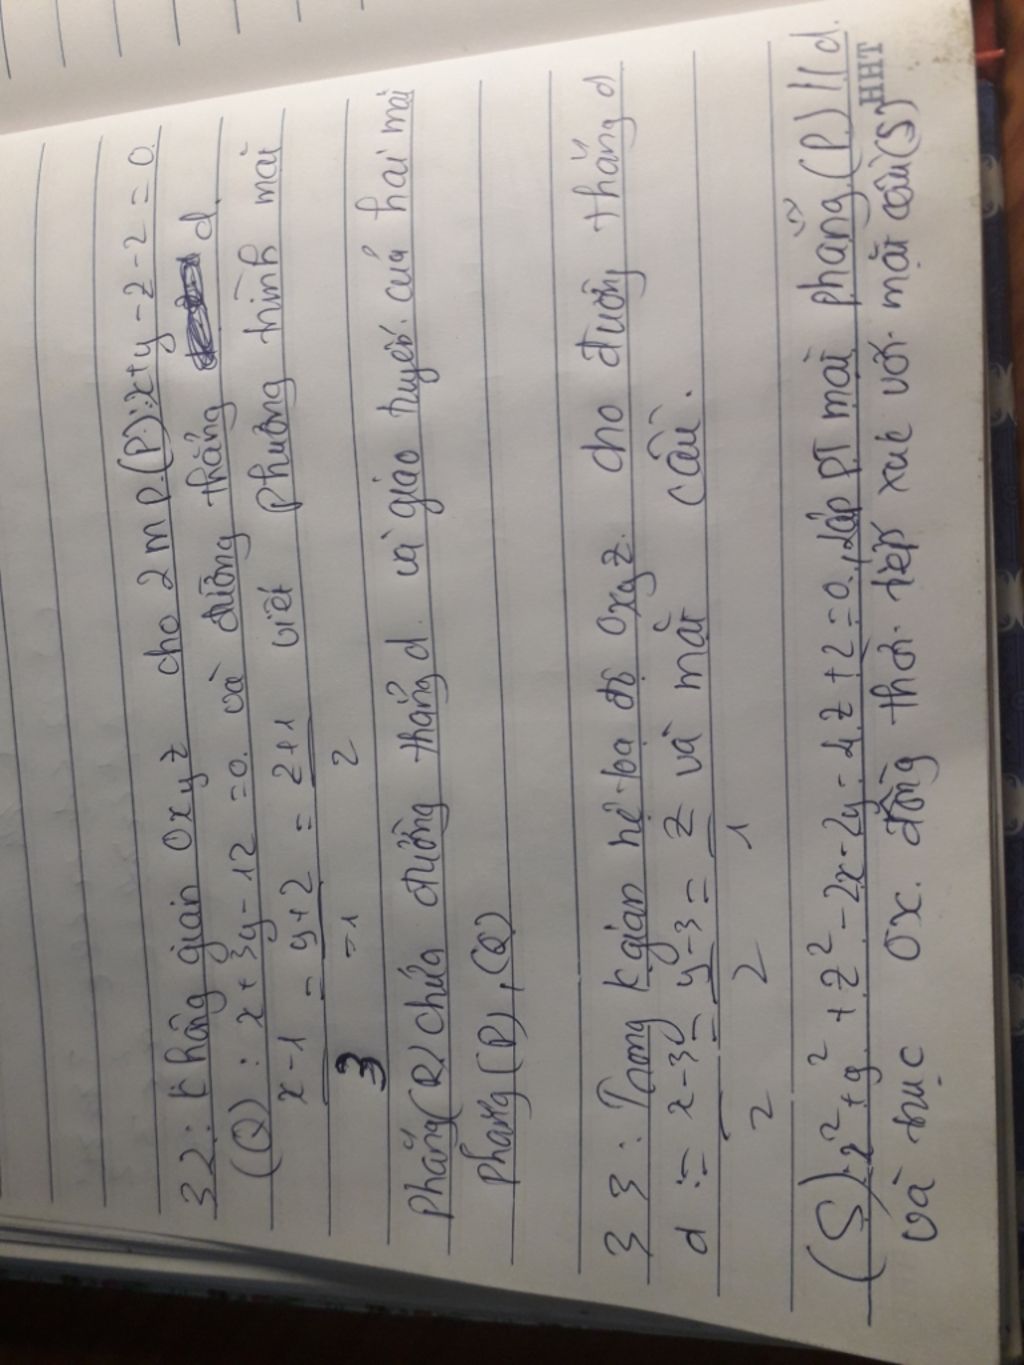 32: Không gian Oxyz cho 2 mp (P): x+y-z-2=0.
(Q): x+3y-12=0. và đường thẳng d.
x-1 = y+2 = z+1 viết phương trình mặt
3 -1 2
phẳng (R) chứa đường thẳng d và giao tuyến của hai mặt
phẳng (P), (Q)
33: Trong k gian hệ tọa độ Oxyz. cho đường thẳng d
d: = x-3 = y-3 = z và mặt cầu.
2 2 1
(S): x²+y²+z²-2x-2y-4z+2=0, lập PT mặt phẳng (P) // d.
và trục Ox. đồng thời tiếp xúc với mặt cầu (S)
HHT